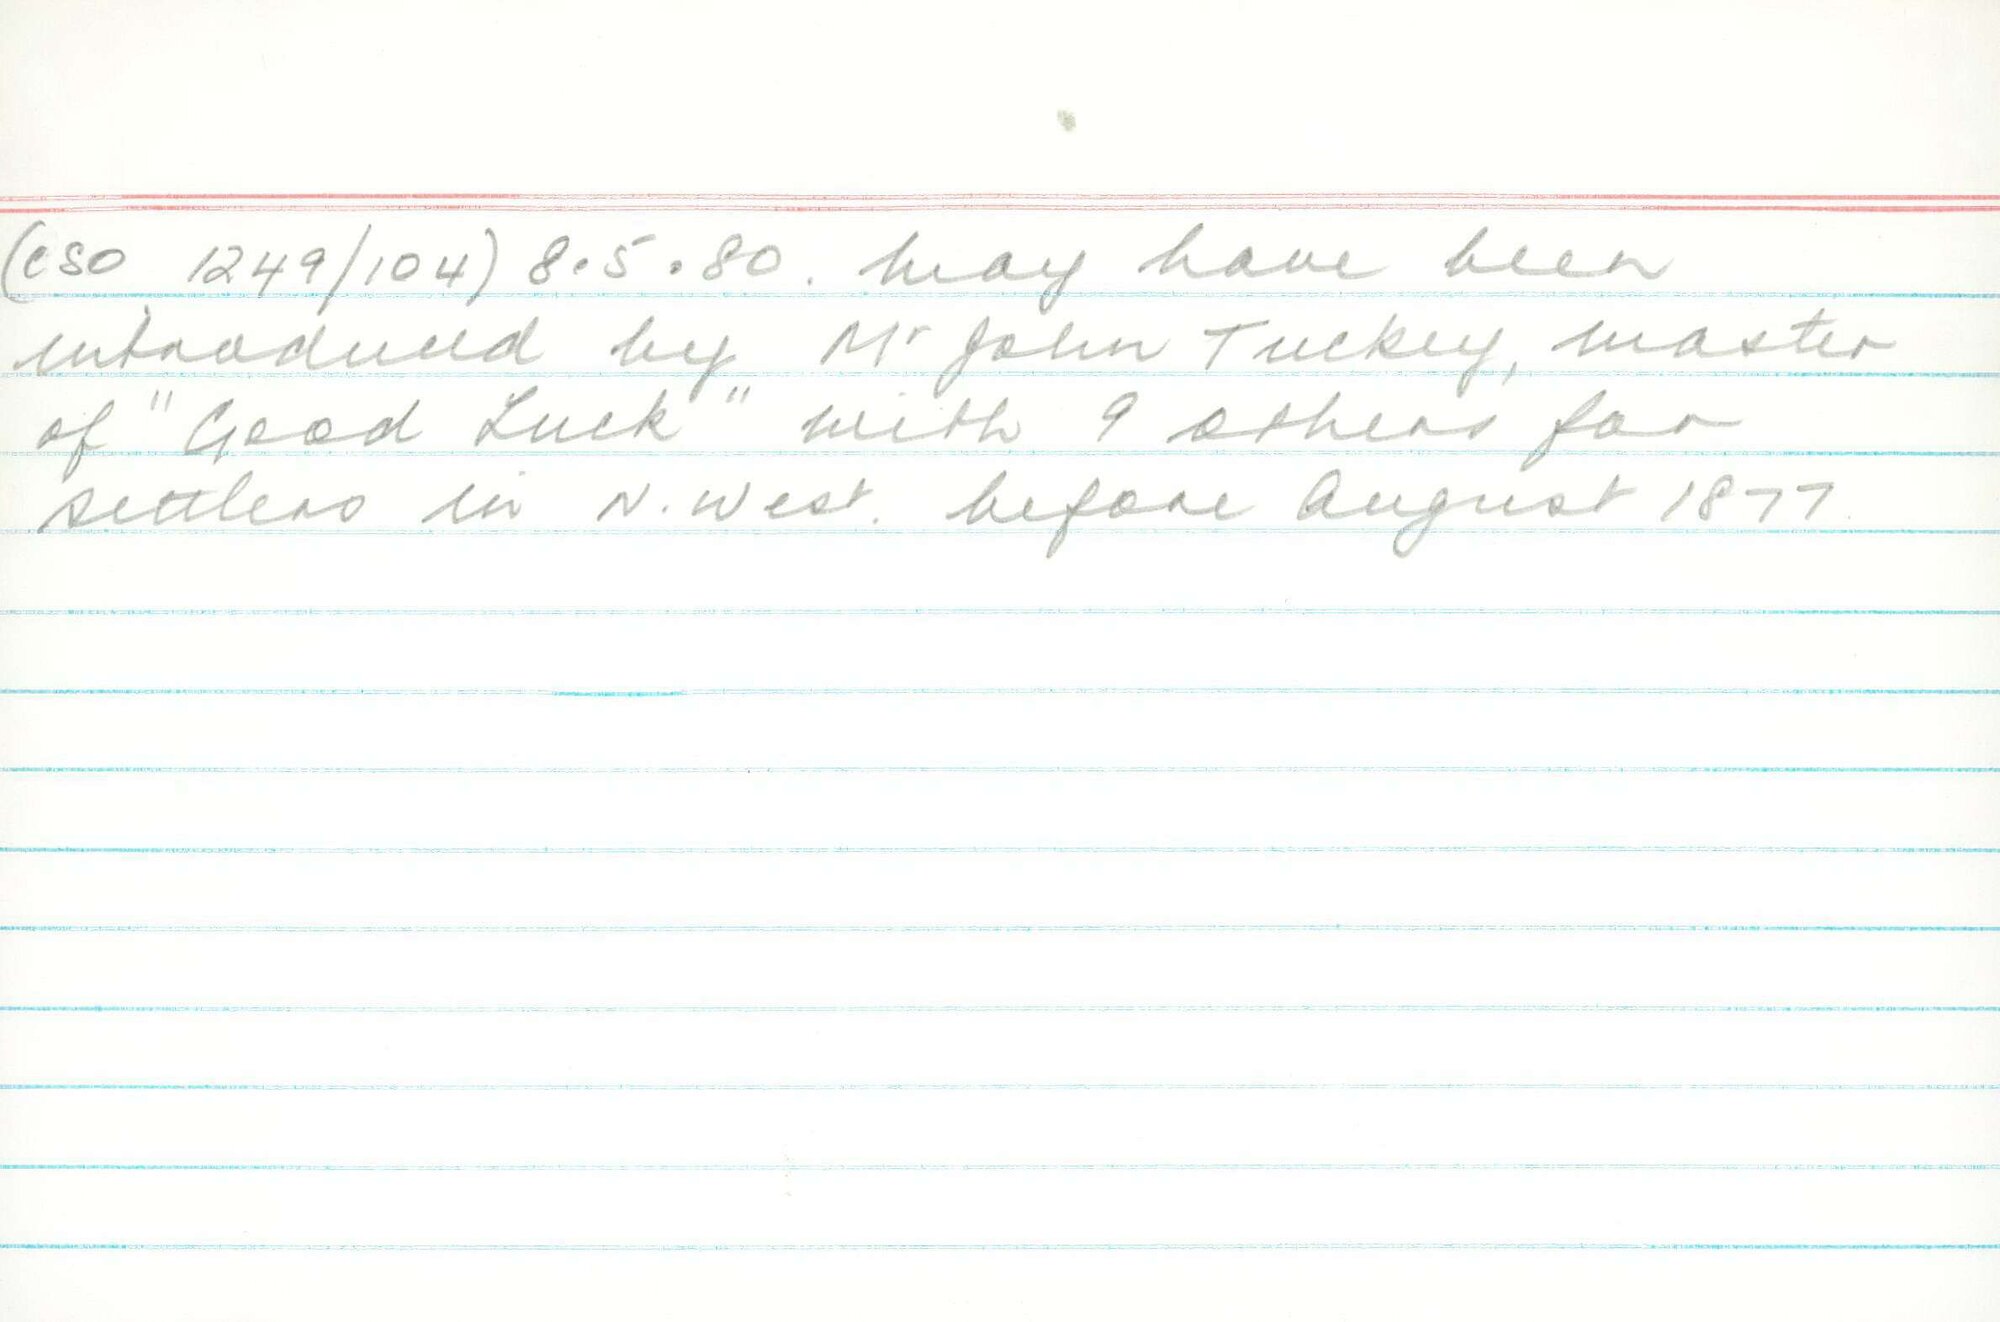 (CSO 1249/104) 8.5.80. may have been
introduced by Mr John Tuckey, master
of "Good Luck" with 9 others for
settlers in N. West. before August 1877.